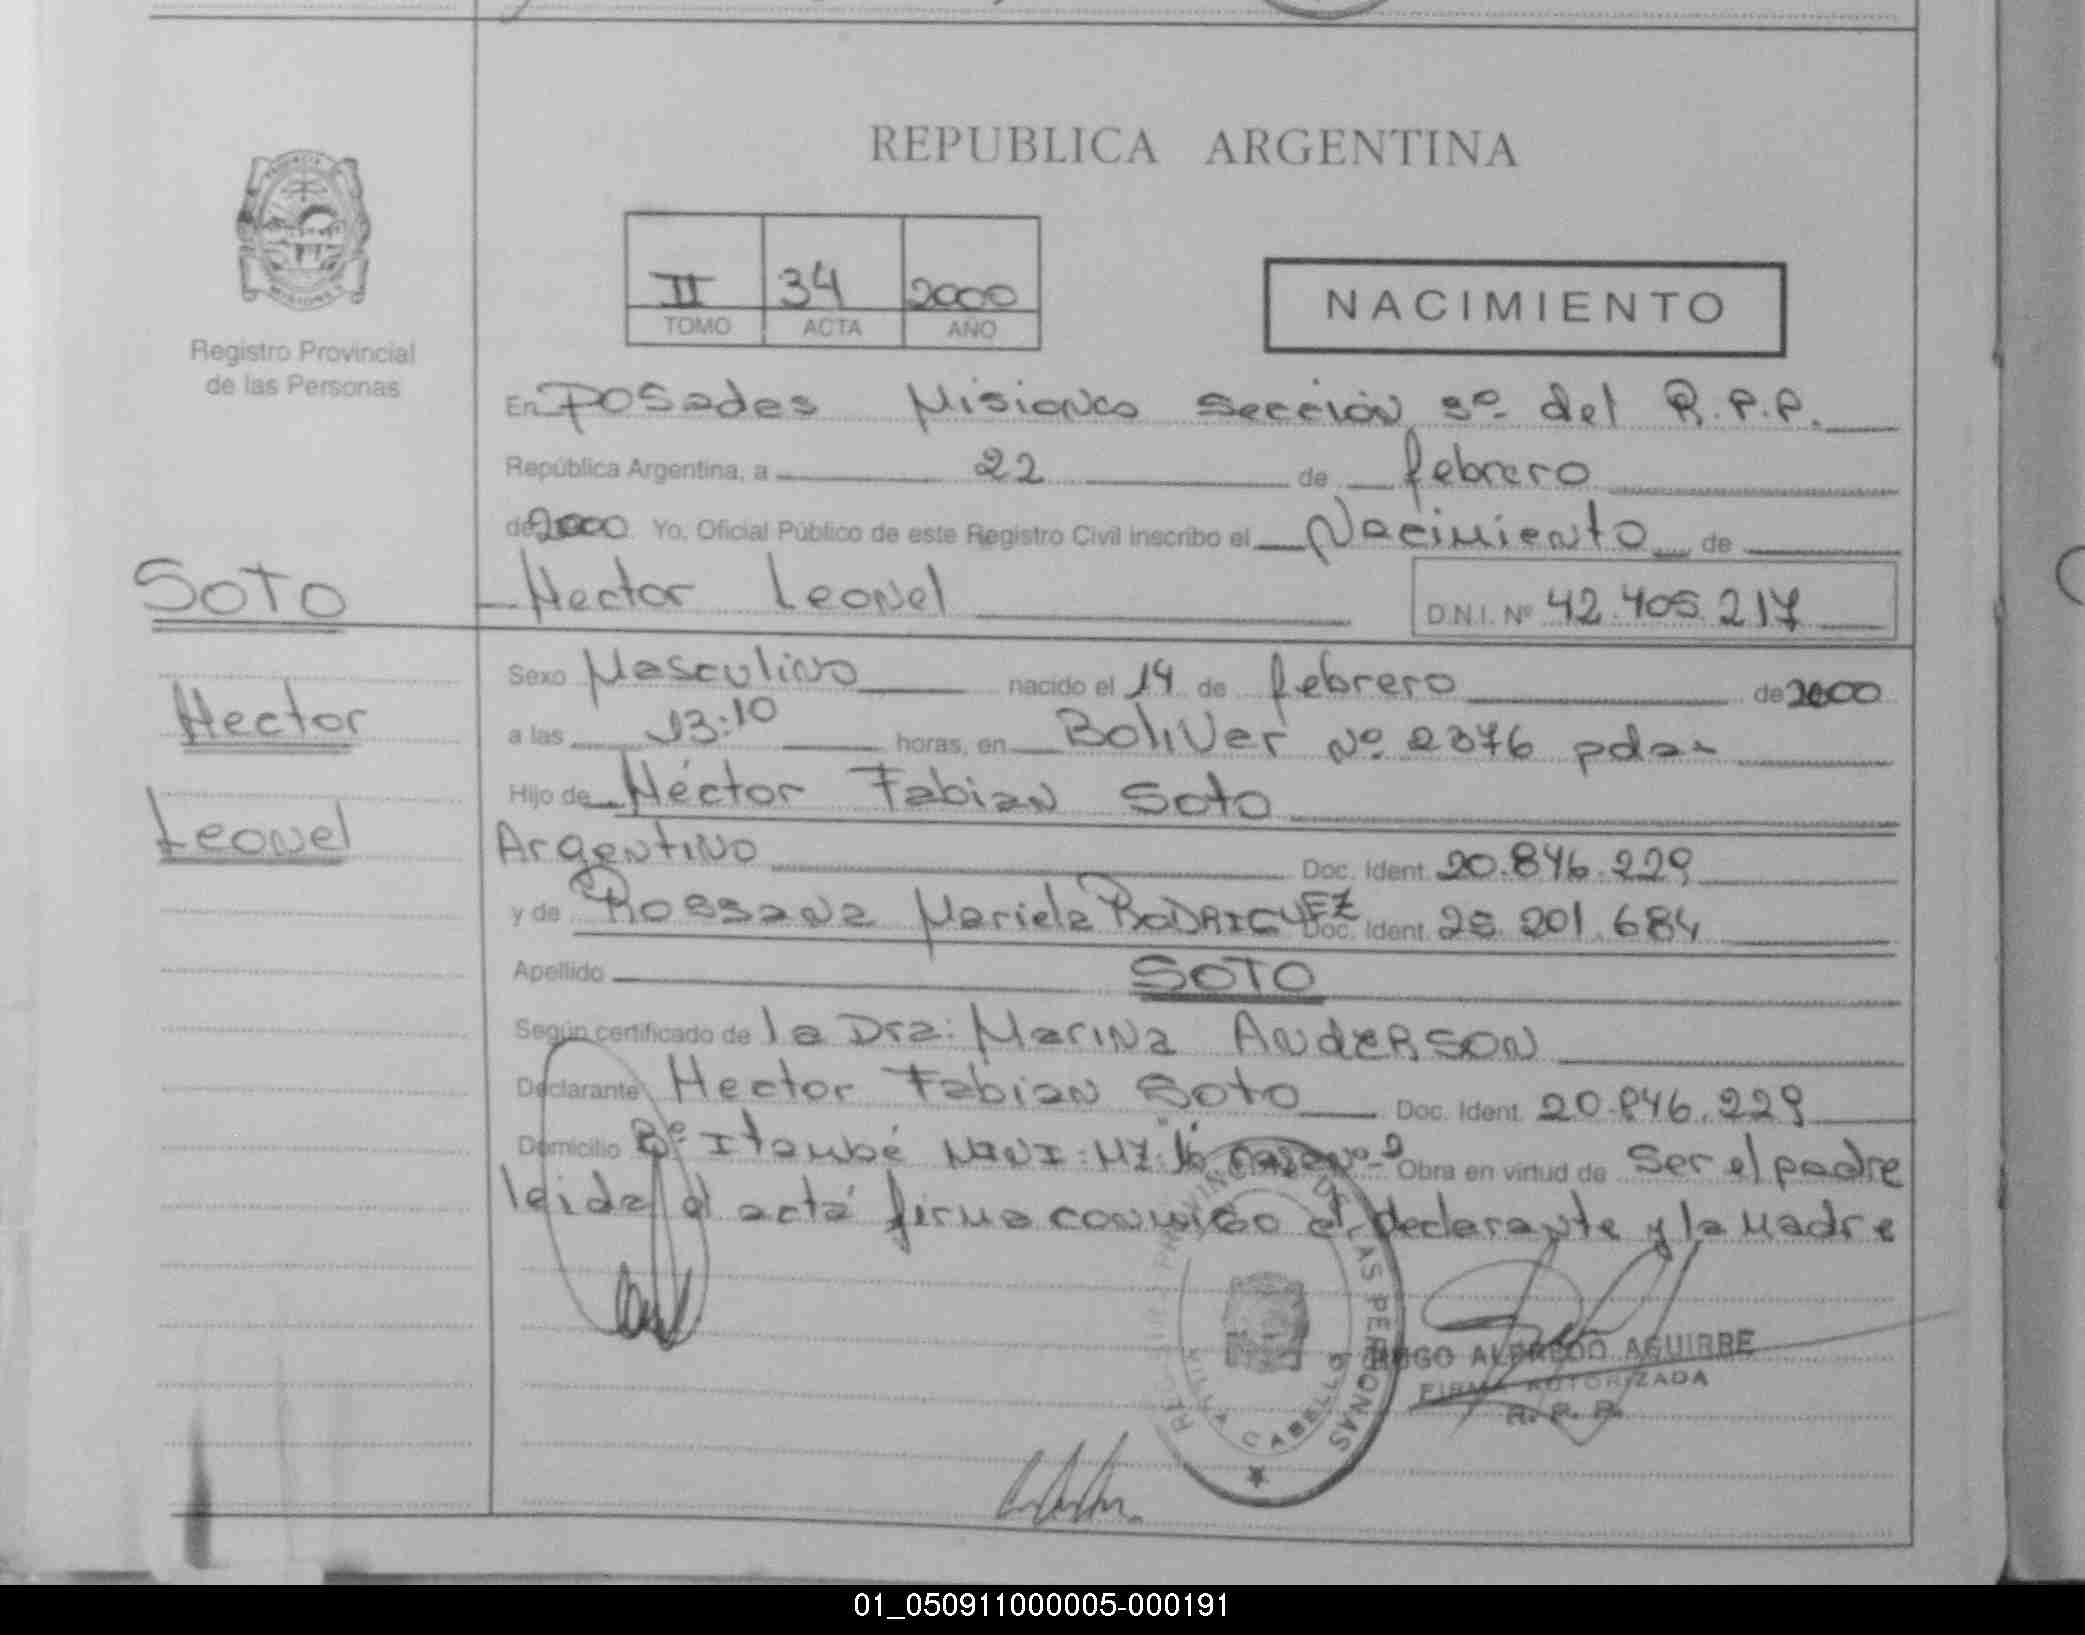 REPUBLICA ARGENTINA
II 34 2000
TOMO ACTA AÑO
NACIMIENTO
Registro Provincial
de las Personas
En Posadas Misiones Sección 3º del R.P.P.
República Argentina, a 22 de febrero
de 2000 Yo, Oficial Público de este Registro Civil inscribo el Nacimiento de
Hector Leonel D.N.I. Nº 42.405.217
SOTO
Hector
Leonel
Sexo Masculino nacido el 14 de febrero de 2000
a las 13:10 horas, en Bolivar Nº 2376 pdas
Hijo de Héctor Fabian Soto
Argentino Doc. Ident. 20.846.229
y de Rossana Mariela RODRIGUEZ Doc. Ident. 25.201.684
Apellido SOTO
Según certificado de la Dra: Marina ANDERSON
Declarante Hector Fabian Soto Doc. Ident. 20.846.229
Domicilio Bº Itaembé MINI: MZ: 16 casa Nº 9 Obra en virtud de Ser el padre
leida el acta firma conmigo el declarante y la Madre
REGISTRO PROVINCIAL DE LAS PERSONAS
VILLA CABELLO
HUGO ALFREDO AGUIRRE
FIRMA AUTORIZADA
R. P. P.
01_050911000005-000191